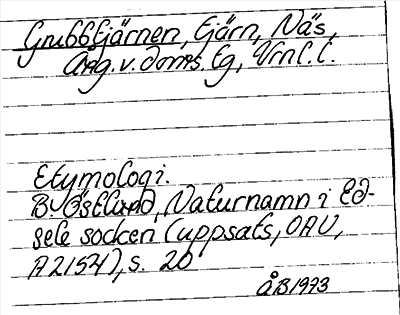 Grubbtjärnen, tjärn, Näs,
Ång. v. doms. tg, Vrnl. l.
Etymologi.
B. Östlund, Naturnamn i Ed-
sele socken (uppsats, OAU,
A2154), s. 20
ÅB 1973